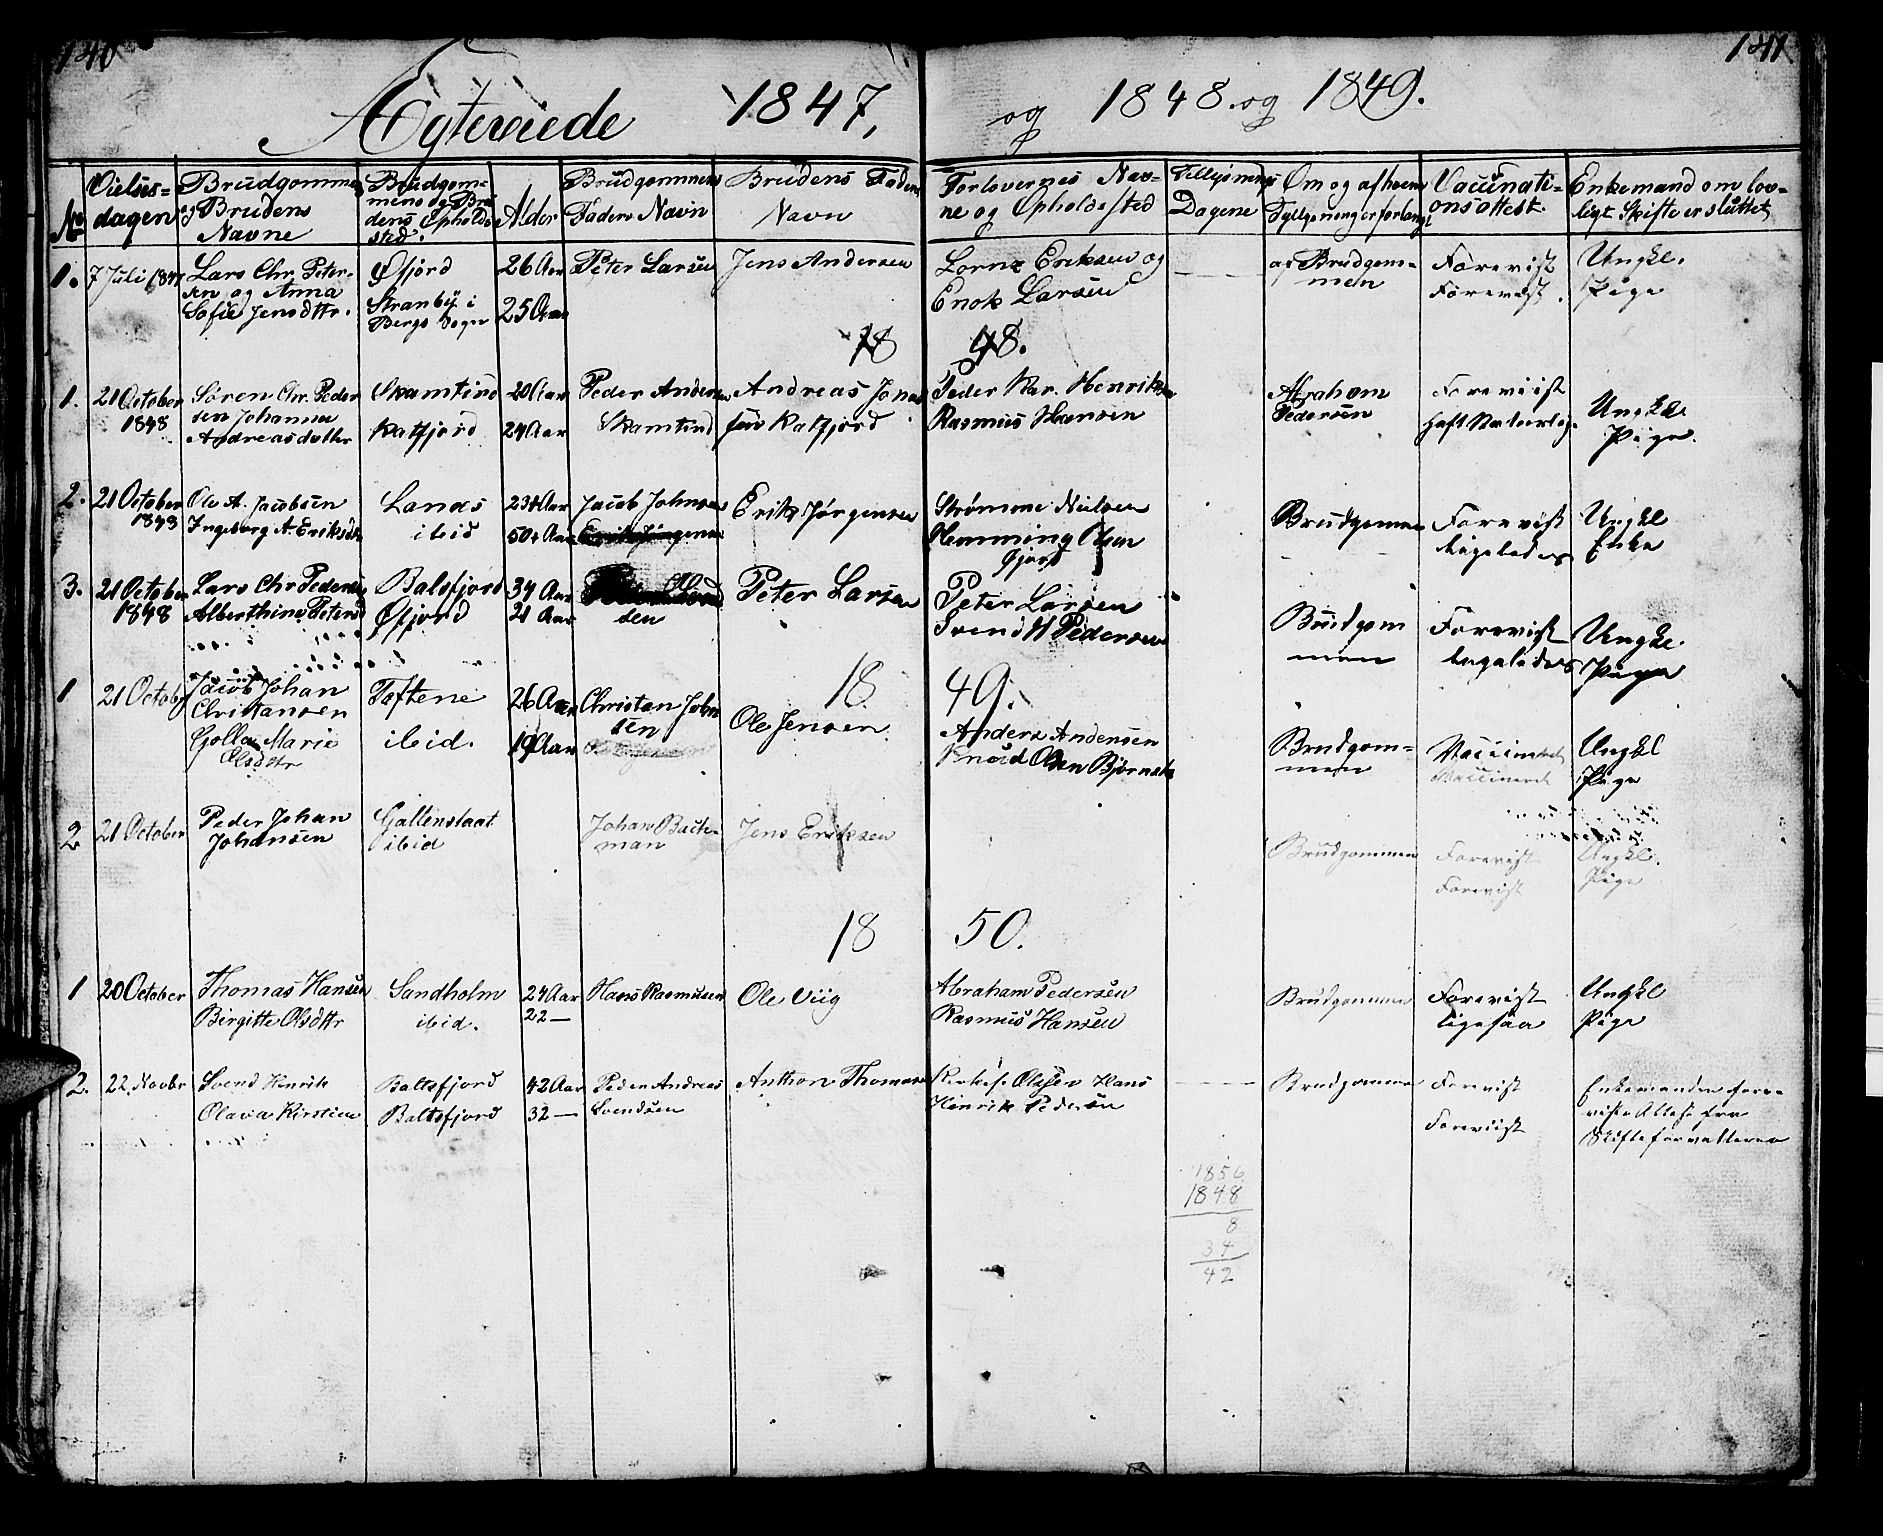 140
141
Ægteviede 1847, og 1848 og 1849.
No
Vielses-
dagen
Brudgommens
og Brudens
Navne
Brudgom-
mens og Bru-
dens Opholds-
sted.
Alder
Brudgommens
Faders Navn
Brudens Faders
Navn
Forlovernes Nav-
ne og Opholdssted
Tillysnings
Dagene
Om og af hvem
Tyllysning er forlangt
Vaccinati-
onsattest.
Enkemand om lov-
ligt Skifte er sluttet
1. 7 Juli 1847
Lars Chr. Peter-
sen og Anna
Sofie Jensdttr.
Øfjord
Stranby i
Bergs Sogn
26 Aar
25 Aar
Peter Larsen
Jens Andersen
Lornz Eriksen og
Enok Larsen
af Brudgom-
men
Forevist
Forevist.
Ungkl.
Pige
18 48.
1. 21 October
1848
Søren Chr. Peder
sen Johanna
Andreasdatter
Skamtind
Katfjord
20 Aar
24 Aar
Peder Andersen
Skamtind
Andreas Jona
sen Katfjord
Peder Kar. Henriksen
Rasmus Hansen
Abraham
Pedersen
Foreviist
haft Naturlige
Ungkl
Pige.
2. 21 October
1848
Ole A. Jacobsen
Ingeborg A. Eriksdtr
Lanes
ibid
23¼ Aar
50¼ Aar
Jacob Johnsen
Erik Jørgensen
Strømme Nielsen
Hemming Olsen
Øjord
Brudgommen
Forevist
ligeledes
Ungkl
Enke
3. 21 October
1848
Lars Chr Pedersen
Alberthine Petersd
Balsfjord
Øfjord
34 Aar
21 Aar
sen
Peter Larsen
Peter Larsen
Svend H Pedersen
Brudgom
men
Forevist
ligeledes
Ungkl.
Pige
18 49.
1 21 October
Jacob Johan
Christansen
Golla Marie
Olsdttr
Toftene
ibid.
26 Aar
19 Aar
Christan John
sen
Ole Jensen
Anders Andersen
Knud Olsen Bjørnsk
Brudgom-
men
Vaccineret
Vaccineret
Ungkl
Pige
2 21 October
Peder Johan
Johansen
Gallenstaat
ibid
Johan Back-
man
Jens Eriksen
Brudgommen
Forevist
Forevist
Ungkl.
Pige
18 50.
1 20 October
Thomas Hansen
Birgitte Olsdttr
Sandholm
ibid.
24 Aar
22 —
Hans Rasmusen
Ole Viig
Abraham Pedersen
Rasmus Hansen
Brudgommen
Forevist
ligesaa
Ungkl
Pige
2. 22 Novbr
Svend Henrik
Olava Kirstine
Baltsfjord
Baltsfjord
42 Aar
32 —
Peder Andreas
Svendsen
Anthon Thomasen
Olsen Hans
Hinrik Pedersen
Brudgommen
Forevist
Foreviist
Enkemanden fore-
viste Attest fra
Skifteforvalteren
1856
1848
8
34
42